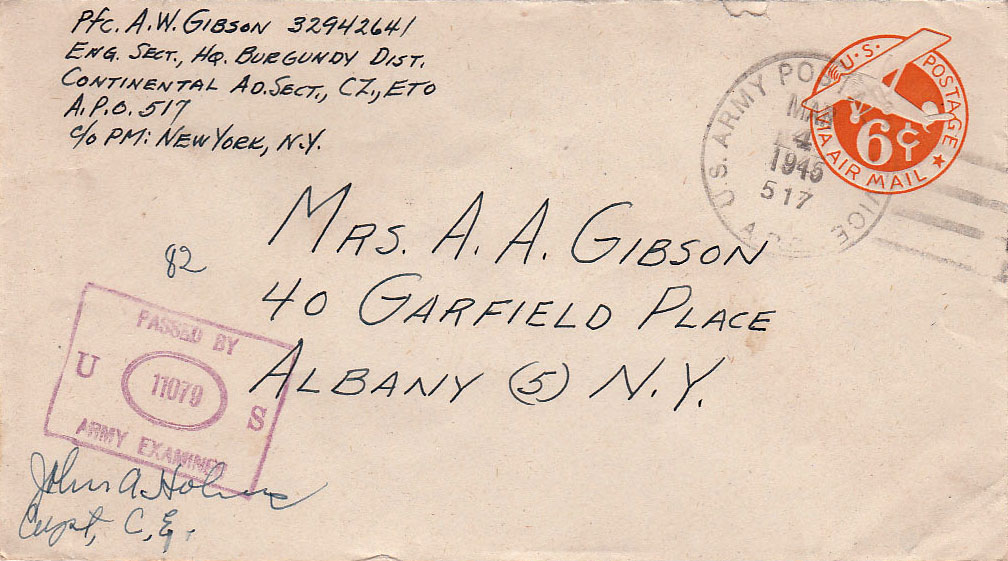 Pfc. A.W. GIBSON 32942641
ENG. SECT., HQ. BURGUNDY DIST.
CONTINENTAL AD. SECT., CZ, ETO
A.P.O. 517
c/o PM: NEW YORK, N.Y.
U.S. POSTAGE
6¢
VIA AIR MAIL
U.S. ARMY POSTAL SERVICE
MAR
4
1945
517
A.P.O.
MRS. A. A. GIBSON
82
40 GARFIELD PLACE
ALBANY (5) N.Y.
PASSED BY
U 11079 S
ARMY EXAMINER
John A Holmes
Capt, C.E.